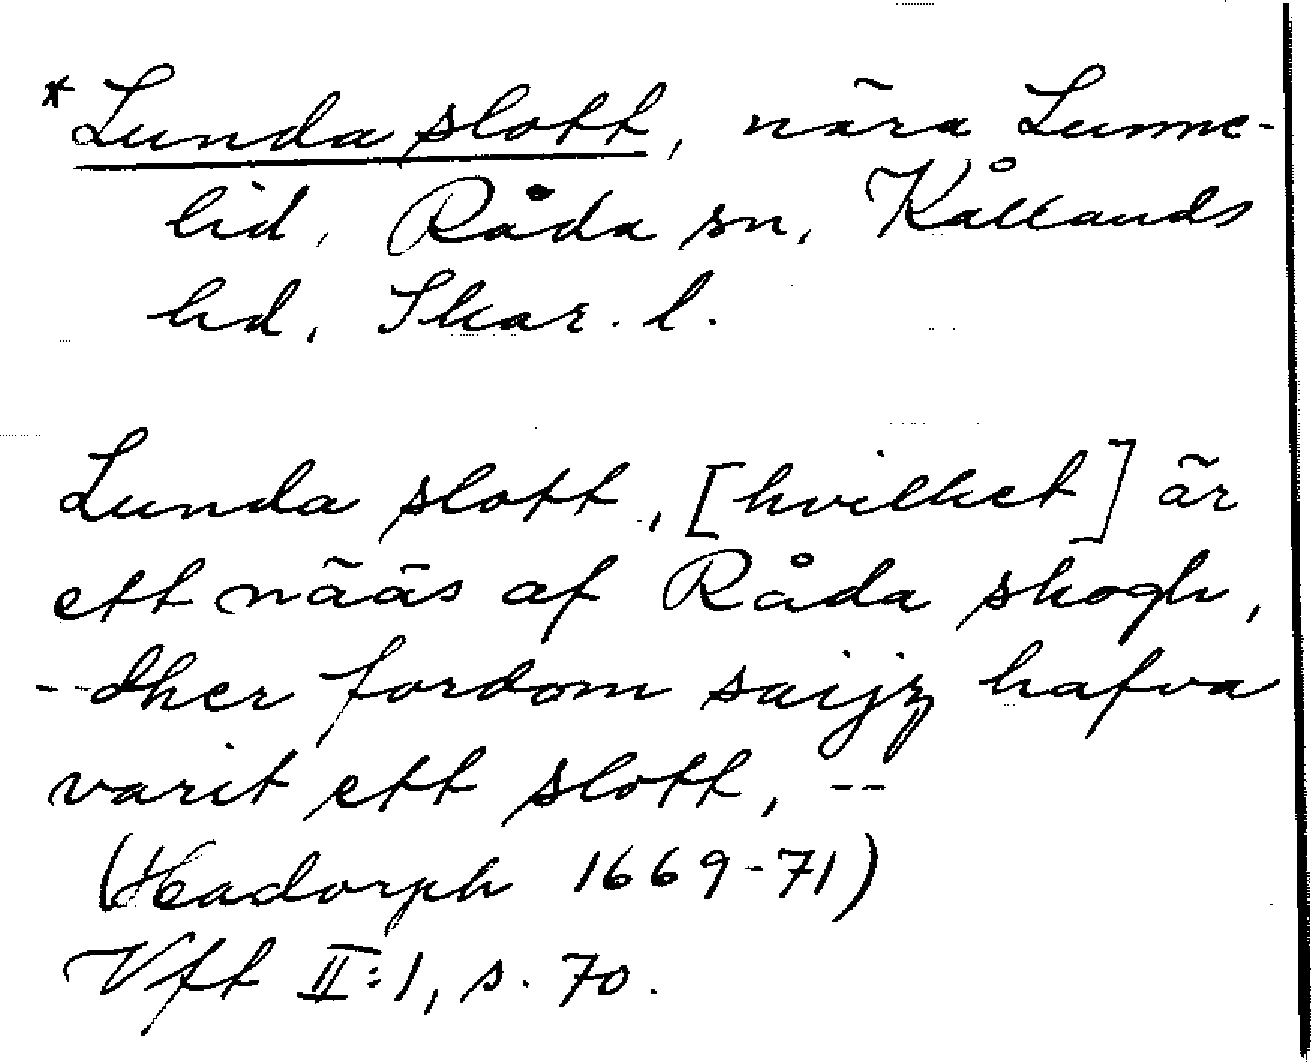 *Lunda slott, nära Lunne-
lid, Råda sn, Kållands
hd, Skar. l.
Lunda slott, [hvilket] är
ett nääs af Råda skogh,
--dher fordom saijz hafva
varit ett slott, --
(Hadorph 1669-71)
Vft II:1, s. 70.